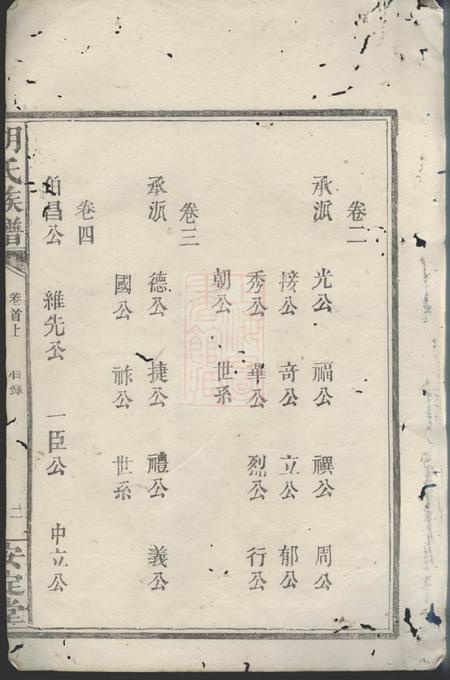 卷二
承派 光公 福公 禩公 周公
接公 奇公 立公 郁公
秀公 華公 烈公 行公
朝公 世系
卷三
承派 德公 捷公 禮公 義公
國公 祚公 世系
卷四
伯昌公 維先公 一臣公 中立公
胡氏族譜 卷首上 目錄 二 安定堂